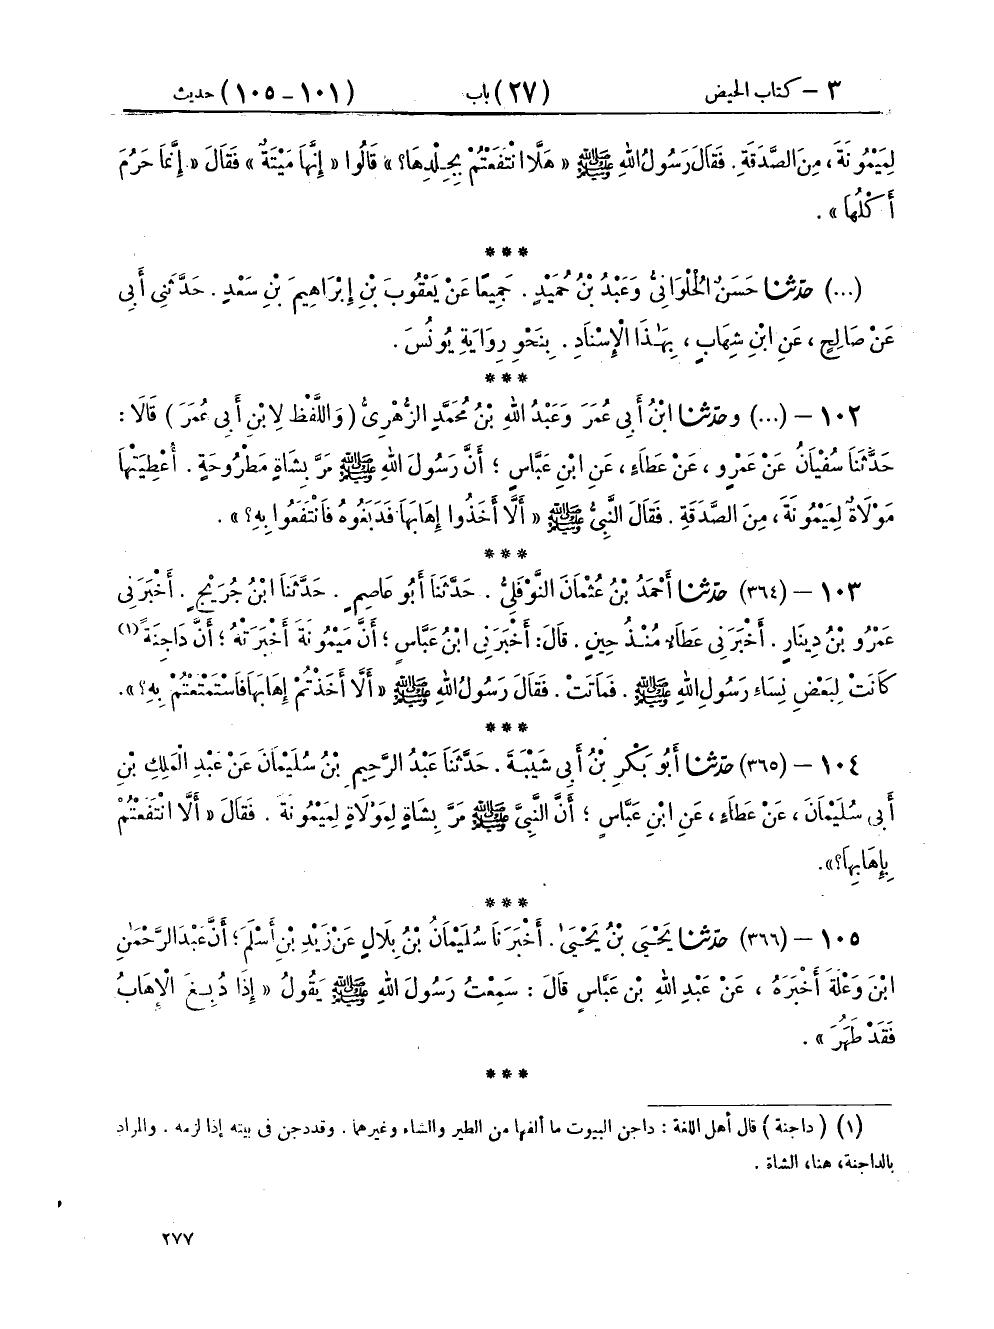 ٣ - كتاب الحيض (٢٧) باب (١٠١ - ١٠٥) حديث
لِمَيْمُونَةَ، مِنَ الصَّدَقَةِ. فَقَالَ رَسُولُ اللهِ ﷺ « هَلَّا انْتَفَعْتُمْ بِجِلْدِهَا؟» قَالُوا « إِنَّهَا مَيْتَةٌ » فَقَالَ « إِنَّمَا حَرُمَ
أَكْلُهَا » .
***
(...) حدّثنا حَسَنٌ الْحُلْوَانِيُّ وَعَبْدُ بْنُ حُمَيْدٍ. جَمِيعًا عَنْ يَعْقُوبَ بْنِ إِبْرَاهِيمَ بْنِ سَعْدٍ. حَدَّثَنِي أَبِي
عَنْ صَالِحٍ، عَنِ ابْنِ شِهَابٍ، بِهَٰذَا الْإِسْنَادِ. بِنَحْوِ رِوَايَةِ يُونُسَ.
***
١٠٢ - (...) وحدّثنا ابْنُ أَبِي عُمَرَ وَعَبْدُ اللهِ بْنُ مُحَمَّدٍ الزُّهْرِيُّ (وَاللَّفْظُ لِابْنِ أَبِي عُمَرَ) قَالَا :
حَدَّثَنَا سُفْيَانُ عَنْ عَمْرٍو، عَنْ عَطَاءٍ، عَنِ ابْنِ عَبَّاسٍ ؛ أَنَّ رَسُولَ اللهِ ﷺ مَرَّ بِشَاةٍ مَطْرُوحَةٍ. أُعْطِيَتْهَا
مَوْلَاةٌ لِمَيْمُونَةَ، مِنَ الصَّدَقَةِ. فَقَالَ النَّبِيُّ ﷺ « أَلَّا أَخَذُوا إِهَابَهَا فَدَبَغُوهُ فَانْتَفَعُوا بِهِ؟ » .
***
١٠٣ - (٣٦٤) حدّثنا أَحْمَدُ بْنُ عُثْمَانَ النَّوْفَلِيُّ. حَدَّثَنَا أَبُو عَاصِمٍ. حَدَّثَنَا ابْنُ جُرَيْجٍ. أَخْبَرَنِي
عَمْرُو بْنُ دِينَارٍ. أَخْبَرَنِي عَطَاءٌ مُنْذُ حِينٍ. قَالَ: أَخْبَرَنِي ابْنُ عَبَّاسٍ ؛ أَنَّ مَيْمُونَةَ أَخْبَرَتْهُ ؛ أَنَّ دَاجِنَةً (١)
كَانَتْ لِبَعْضِ نِسَاءِ رَسُولِ اللهِ ﷺ. فَمَاتَتْ. فَقَالَ رَسُولُ اللهِ ﷺ « أَلَّا أَخَذْتُمْ إِهَابَهَا فَاسْتَمْتَعْتُمْ بِهِ؟ » .
***
١٠٤ - (٣٦٥) حدّثنا أَبُو بَكْرِ بْنُ أَبِي شَيْبَةَ. حَدَّثَنَا عَبْدُ الرَّحِيمِ بْنُ سُلَيْمَانَ عَنْ عَبْدِ الْمَلِكِ بْنِ
أَبِي سُلَيْمَانَ، عَنْ عَطَاءٍ، عَنِ ابْنِ عَبَّاسٍ ؛ أَنَّ النَّبِيَّ ﷺ مَرَّ بِشَاةٍ لِمَوْلَاةٍ لِمَيْمُونَةَ. فَقَالَ « أَلَّا انْتَفَعْتُمْ
بِإِهَابِهَا؟ » .
***
١٠٥ - (٣٦٦) حدّثنا يَحْيَىٰ بْنُ يَحْيَىٰ. أَخْبَرَنَا سُلَيْمَانُ بْنُ بِلَالٍ عَنْ زَيْدِ بْنِ أَسْلَمَ ؛ أَنَّ عَبْدَ الرَّحْمَٰنِ
ابْنَ وَعْلَةَ أَخْبَرَهُ، عَنْ عَبْدِ اللهِ بْنِ عَبَّاسٍ قَالَ : سَمِعْتُ رَسُولَ اللهِ ﷺ يَقُولُ « إِذَا دُبِغَ الْإِهَابُ
فَقَدْ طَهُرَ » .
***
(١) (داجنة) قال أهل اللغة : داجن البيوت ما ألفها من الطير والشاء وغيرهما . وقد دجن فى بيته إذا لزمه . والمراد
بالداجنة، هنا، الشاة .
٢٧٧